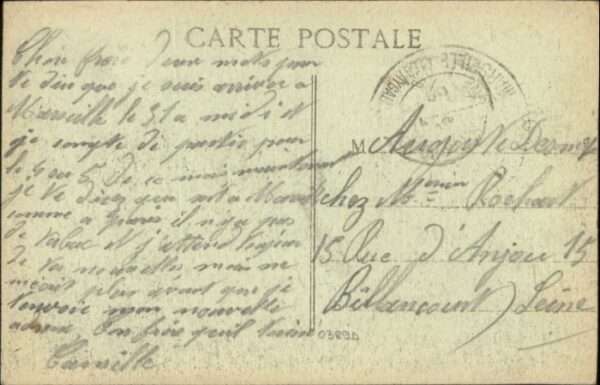 CARTE POSTALE
Cher frère Deux mots pour
te dire que je suis arriver a
Marseille le 31 a midi et
je compte de partir pour
le 4 ou 5 De ce mois maintenant
je te direz que est a Marseille
comme a Gravis il n'ya pas
de tabac et j'attend toujour
de tes nouvelles mais ne
mecrit plus avant que je
t'envoie mon nouvelle
adresse Ton frère qui
Camille
M Auguste
chez Mr Rochart
15 Rue d'Anjou 15
Billancourt Seine
03890